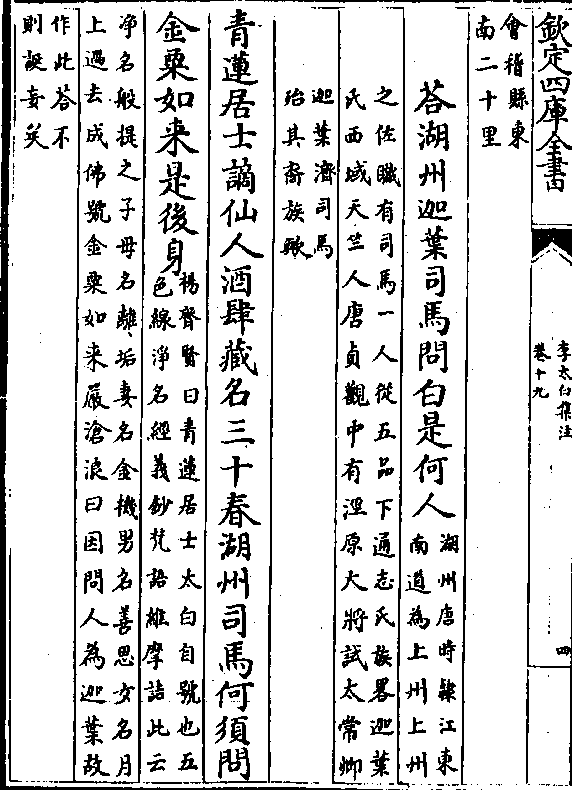 欽定四庫全書
李太白集注
卷十九
四
會稽縣東
南二十里
荅湖州迦葉司馬問白是何人
湖州唐時隸江東
南道為上州上州
之佐職有司馬一人從五品下通志氏族畧迦葉
氏西域天竺人唐貞觀中有涇原大將試太常卿
迦葉濟司馬
殆其裔族歟
青蓮居士謫仙人酒肆藏名三十春湖州司馬何須問
金粟如来是後身
楊齊賢曰青蓮居士太白自號也五
色線淨名經義鈔梵語維摩詰此云
淨名般提之子母名離垢妻名金機男名善思女名月
上過去成佛號金粟如来嚴滄浪曰因問人為迦葉故
作此荅不
則誕妄矣